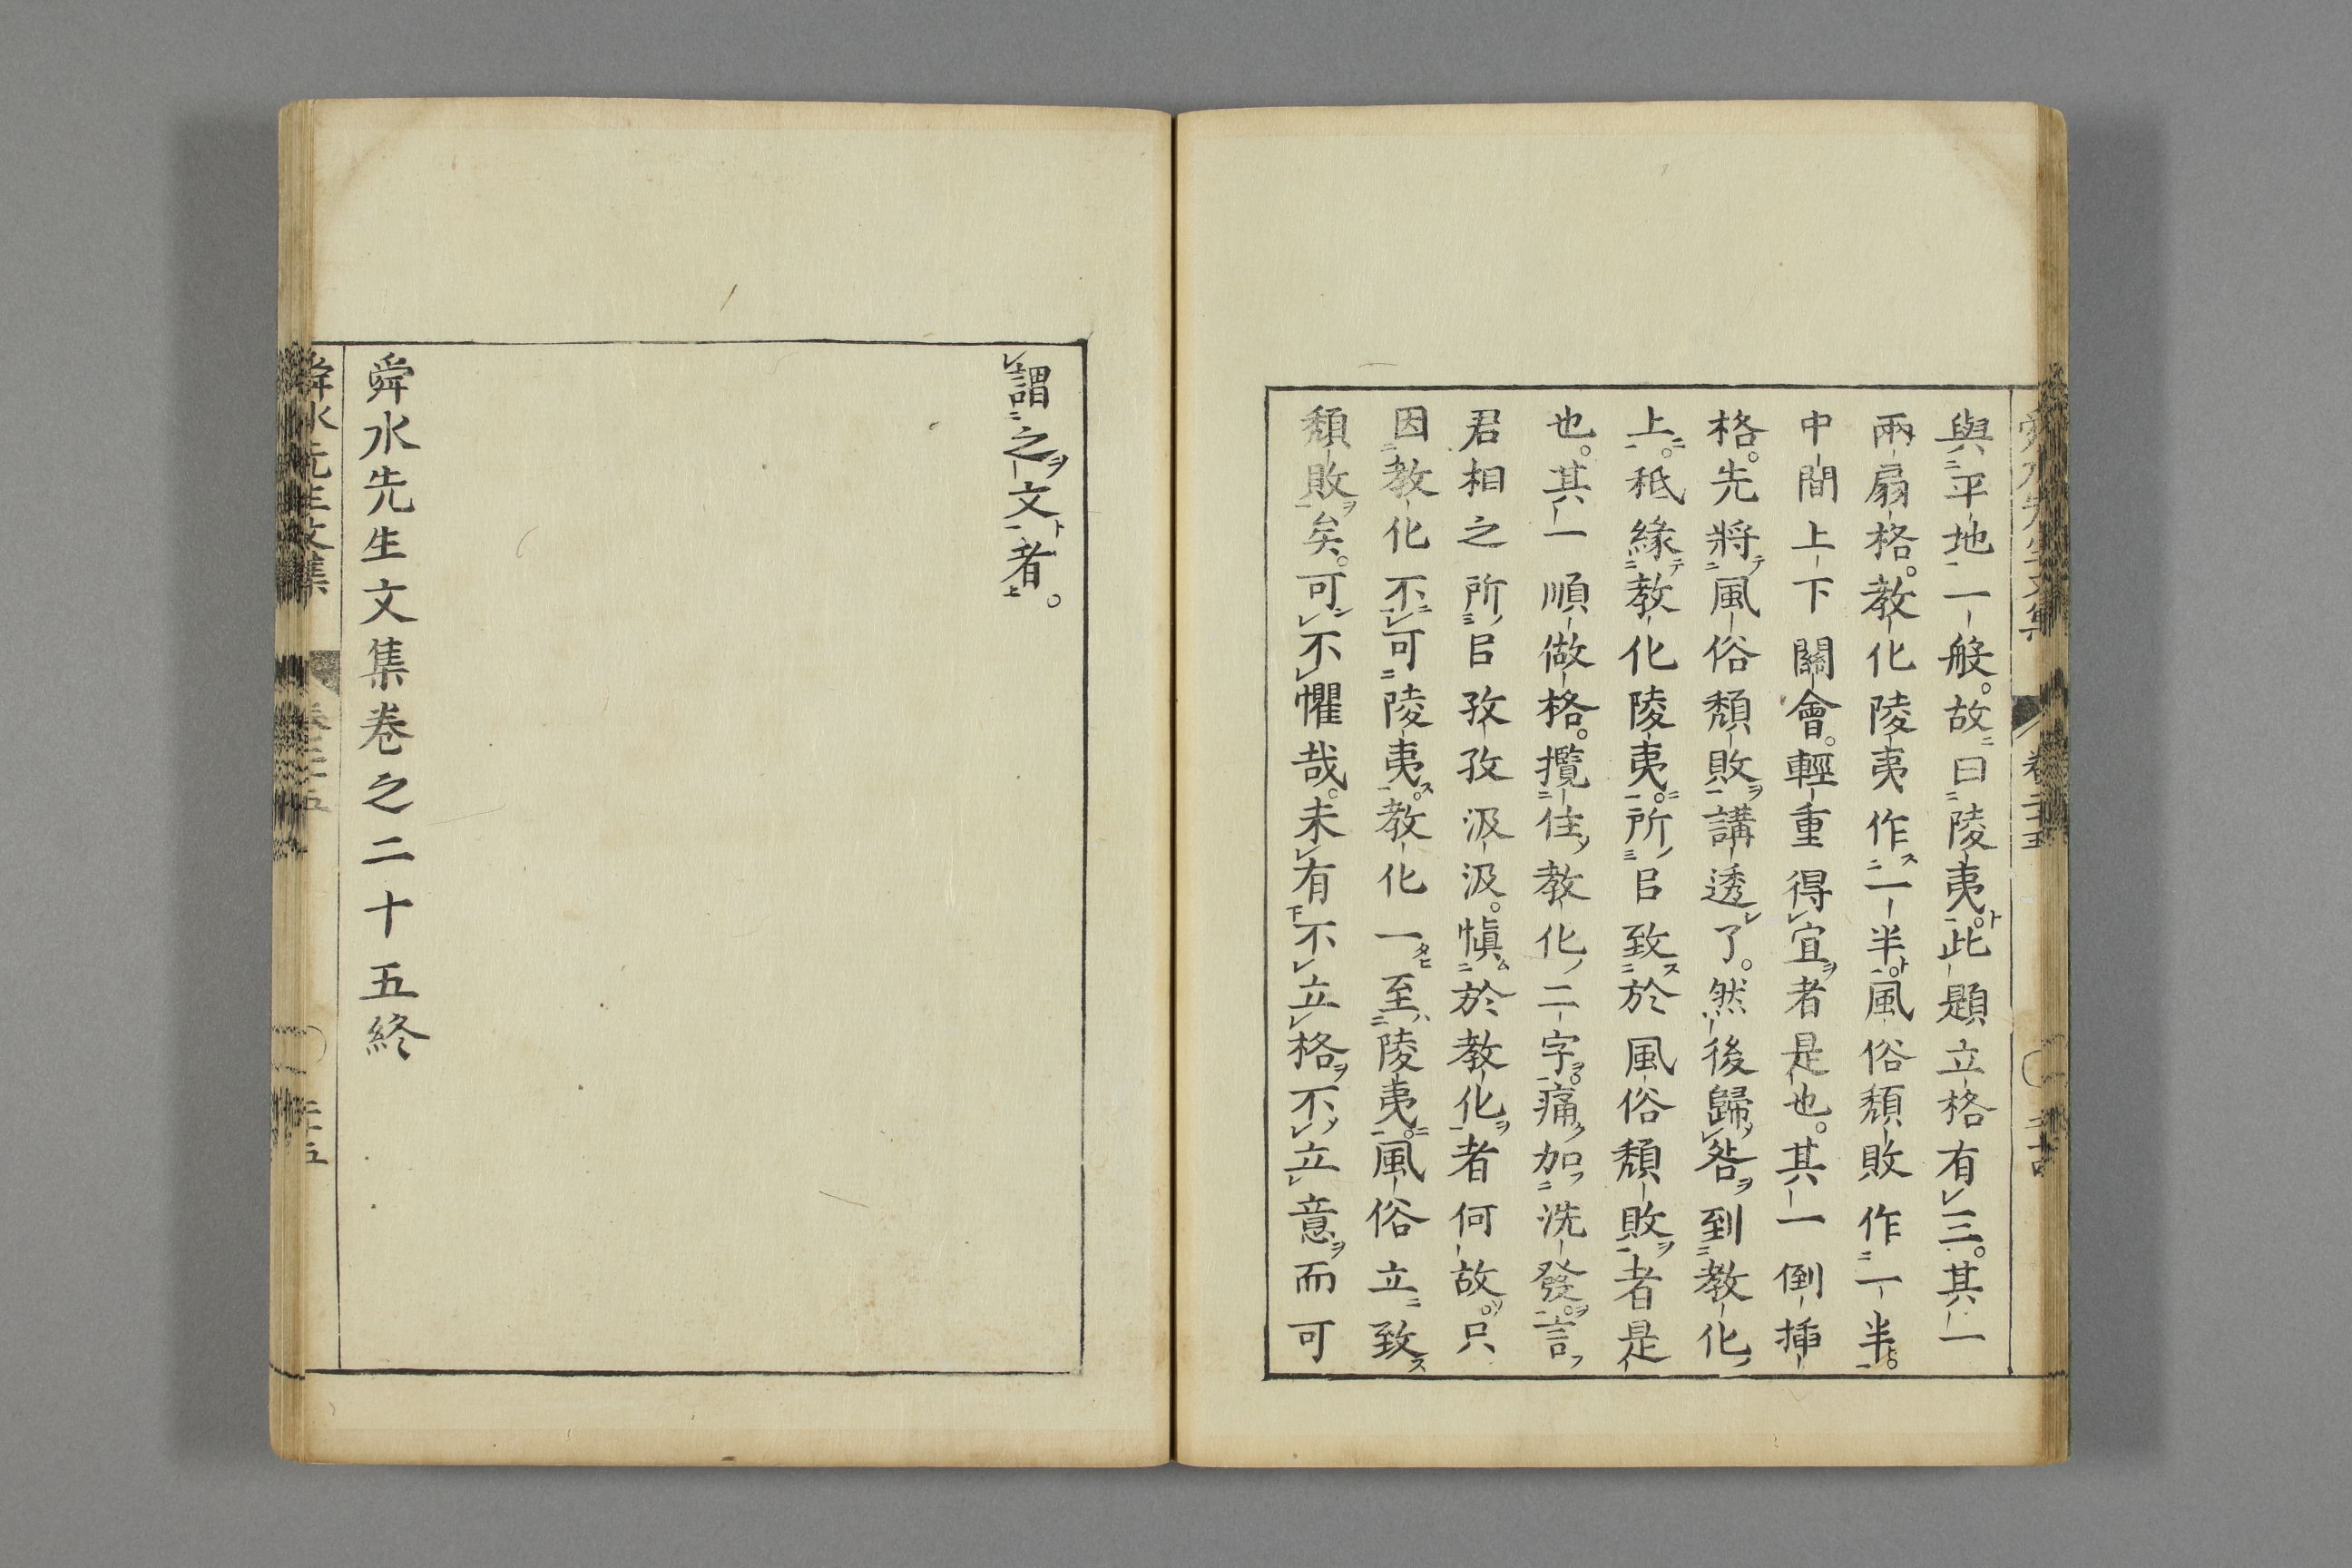 與平地一般。故曰陵夷。此題立格有三。其一
兩扇格。教化陵夷作一半。風俗頽敗作一半。
中間上下關會。輕重得宜者是也。其一倒揷
格。先將風俗頽敗講透了。然後歸咎到教化
上。秪緣教化陵夷。所㠯致於風俗頽敗者是
也。其一順做格。攬住教化二字。痛加洗發。言
君相之所㠯孜孜汲汲。愼於教化者何故。只
因教化不可陵夷。教化一至陵夷。風俗立致
頽敗矣。可不懼哉。未有不立格不立意而可
謂之文者。
舜水先生文集卷之二十五終
舜水先生文集
卷二十五